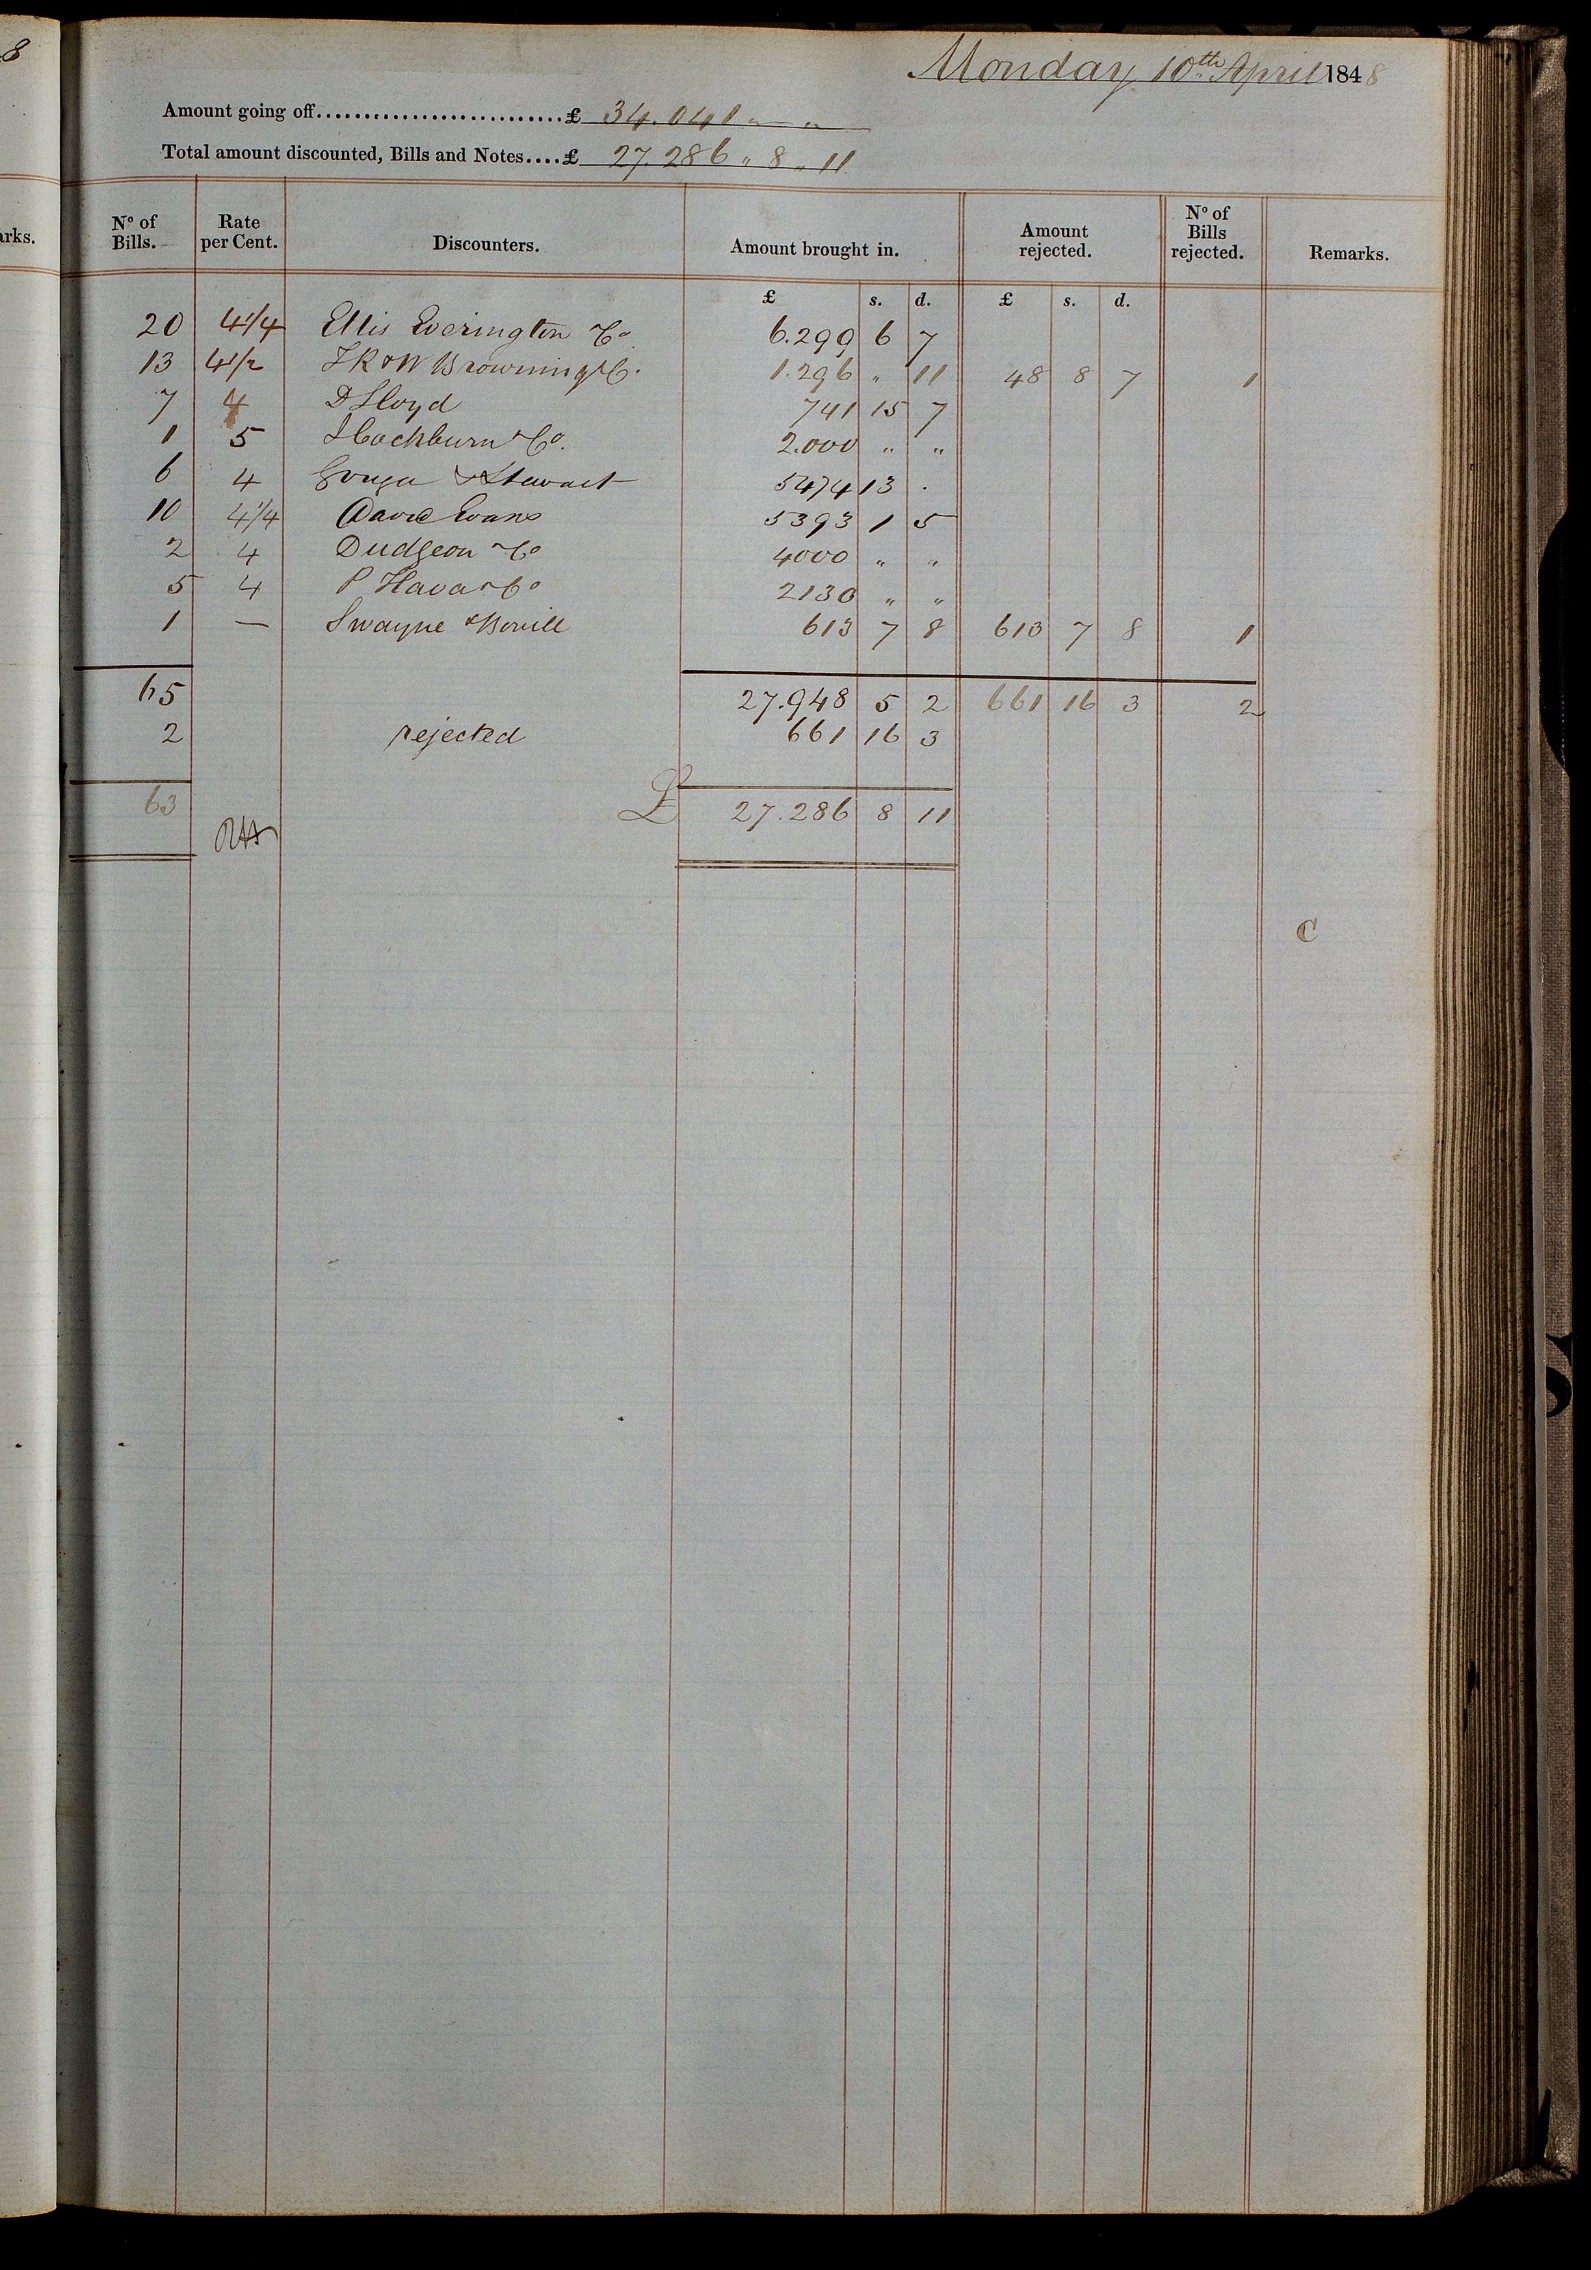 8
arks.
Monday 10th April 1848
Amount going off...........................£ 34.041 " "
Total amount discounted, Bills and Notes....£ 27.286 " 8 " 11
No of Bills. Rate per Cent. Discounters. Amount brought in. Amount rejected. No of Bills rejected. Remarks.
£ s. d. £ s. d.
20 4 1/4 Ellis Everington & Co 6.299 6 7
13 4 1/2 & W Browning & Co. 1.296 " 11 48 8 7 1
7 4 D Lloyd 741 15 7
1 5 & Co. 2.000 " "
6 4 & Stewart 5474 13 .
10 4 1/4 David Evans 5393 1 5
2 4 Dudgeon & Co 4000 " "
5 4 P Hava & Co 2130 " "
1 — Swayne & Bovill 613 7 8 613 7 8 1
65 27.948 5 2 661 16 3 2
2 rejected 661 16 3
63 £ 27.286 8 11
C